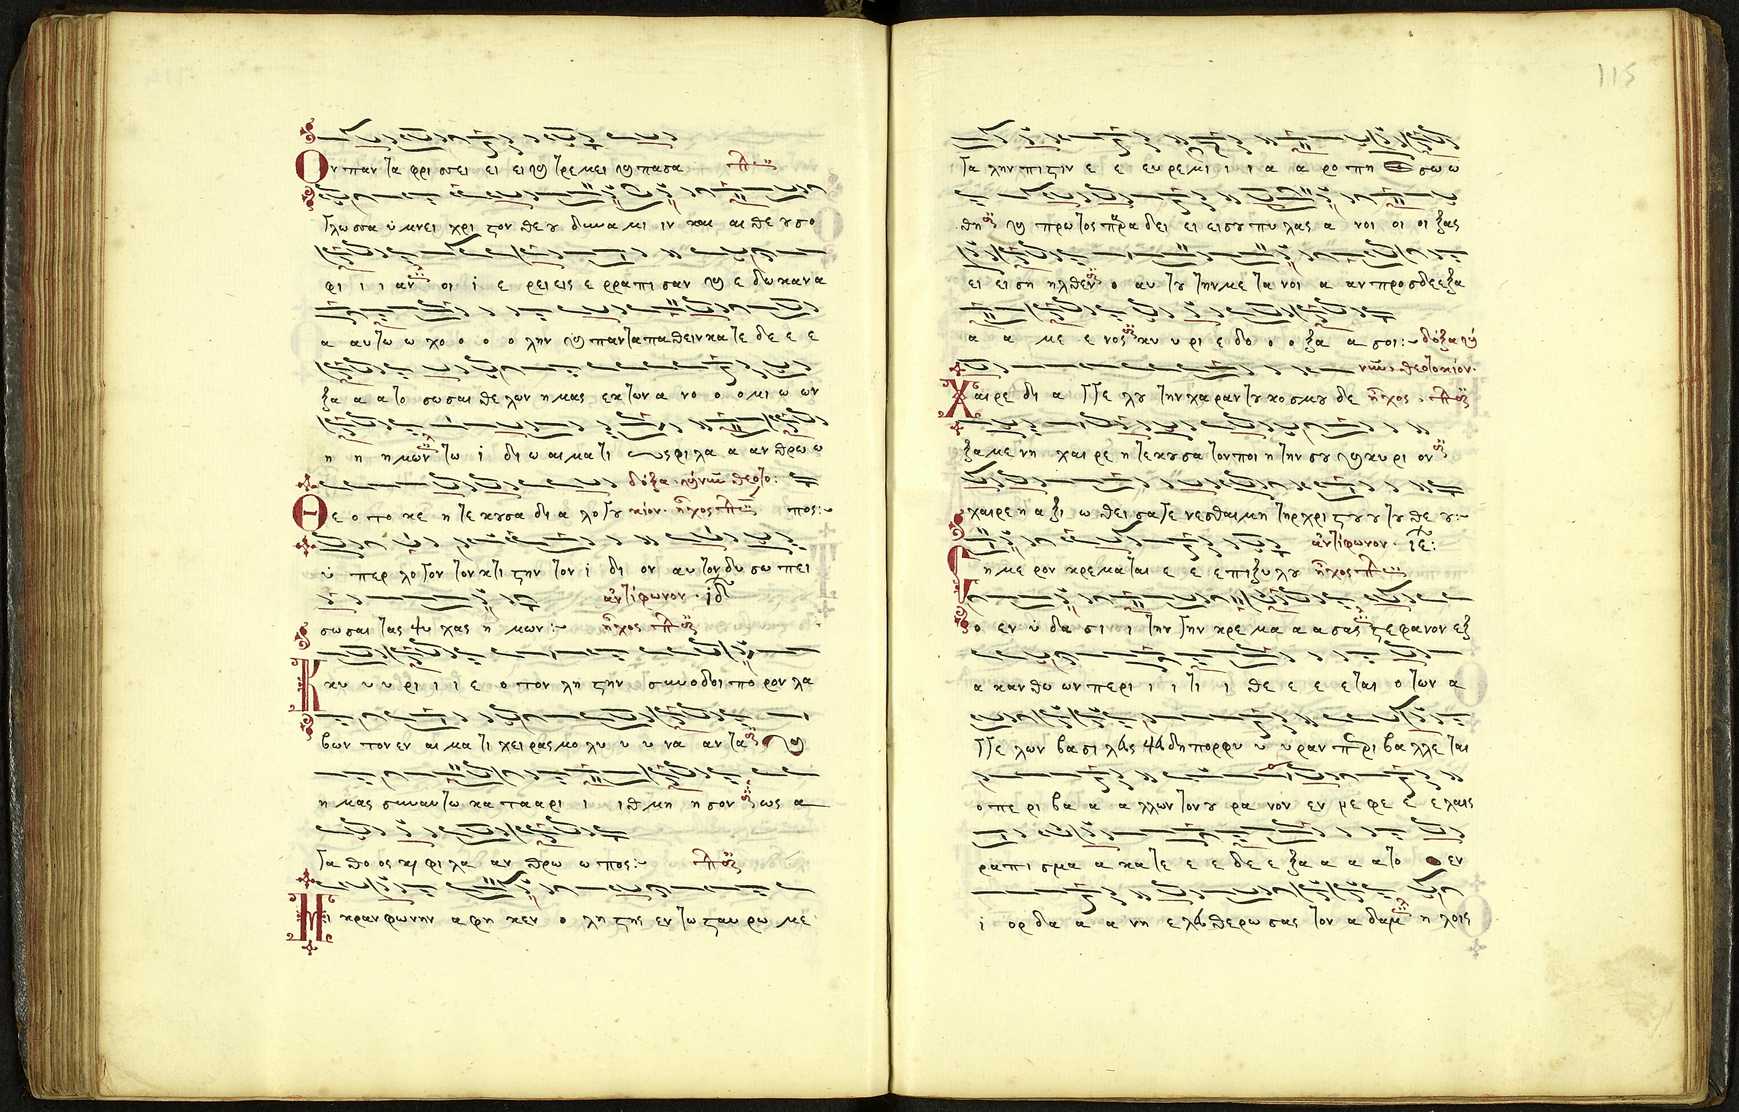 Ον παν τα φρι σσει ει ει ϗ τρε μει ϗ πασα
γλωσσα ύ μνει χρι στον θεου δυνα μι ιν και αι θε ου σο
φι ι ι αν οι ί ε ρει εις ε ρραπι σαν ϗ ε δω καν α
α αυτω ω χο ο ο ο λην ϗ παντα πα θειν κα τε δε ε ε
ξα α α το σωσαι θε λων η μας εκ των α νο ο ο μι ω ων
η η η μων τω ί δι ω αι μα τι ως φι λα α αν θρω ω
δόξα ϗ νῦν θεοτο
Θε ο το κε η τε κουσα δι α λο γου κίον ἦχος πος:
ύ περ λο γον τον κτι στην τον ί δι ον αυ τον δυ σω πει
αντίφωνον. ιδ
σωσαι τας ψυ χας η μων: ἦχος
Κυ υ υ ρι ι ι ε ο τον λη στην συνοδοι πο ρον λα
βων τον εν αι μα τι χειρας μο λυ υ υ να αν τα ϗ
η μας συν αυ τω κα τα αρι ι ι θ μη η σον ως α
γα θο ος κ φι λα αν θρω ω πος:
Μι κραν φωνην α φη κεν ο λη στης εν τω σταυ ρω με
115
γα λην πι στιν ε ε ευρε μι ι ι α α ρο πη ε σω ω
θη ϗ πρω τος πρα δει ει ει σου πυ λας α νοι οι οι ξας
ει ει ση ηλθεν ο αυ του την με τα νοι α αν προσδε εξα
α α με ε νος κυ υ ρι ε δο ο ο ξα α σοι: δόξα ϗ
νῦν θεοτοκίον.
Χαιρε δι α γγε λου την χα ραν του κοσμου δε ἦχος.
ξα με νη χαι ρε η τε κουσα τον ποι η την σου ϗ κυ ρι ον
χαιρε η α ξι ω θει σα γε νεσθαι μη τηρ χρι στου ου του θε ου:
αντίφωνον. ιε:
Ση με ρον κρεμα ται ε ε επι ξυ λου ἦχος
ο εν ύ δα σι ι την γην κρε μα α α σας στεφανον εξ
α καν θω ων περι ι ι τι ι θε ε ε ε ται ο των α
γγε λων βα σι λευς ψευδη πορφυ υ υ ραν περι βα λλε ται
ο πε ρι βα α α λλων τον ου ρα νον εν νε φε ε ε λαις
ρα πι σμα α κα τε ε ε δε ε ξα α α α το ο εν
ι ορ δα α α νη ε λευθερω σας τον α δαμ η λοις